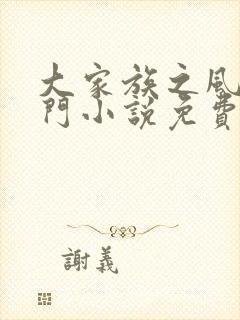 大家族之風
門小說免費
謝義